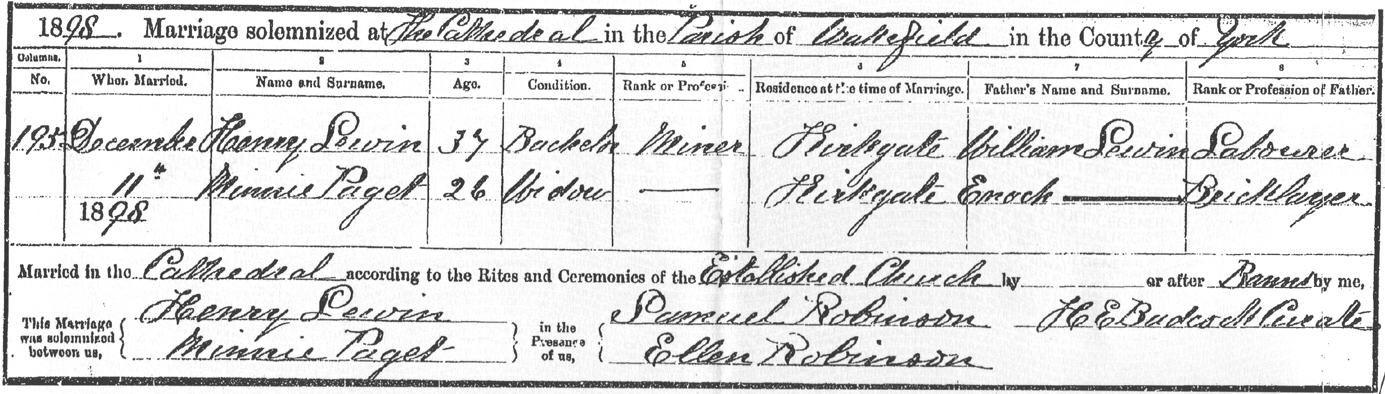 1898. Marriage solemnized at The Cathedral in the Parish of Wakefield in the County of York
Columns. 1 2 3 4 5 6 7 8
No. When Married. Name and Surname. Age. Condition. Rank or Profession. Residence at the time of Marriage. Father's Name and Surname. Rank or Profession of Father.
195 December Henry Lewin 37 Bachelor Miner Kirkgate William Lewin Labourer
11th Minnie Paget 26 Widow — Kirkgate Enoch — Bricklayer
1898
Married in the Cathedral according to the Rites and Ceremonies of the Established Church by or after Banns by me,
This Marriage was solemnized between us, Henry Lewin in the Presence of us, Samuel Robinson H E Badcock Curate
Minnie Paget Ellen Robinson